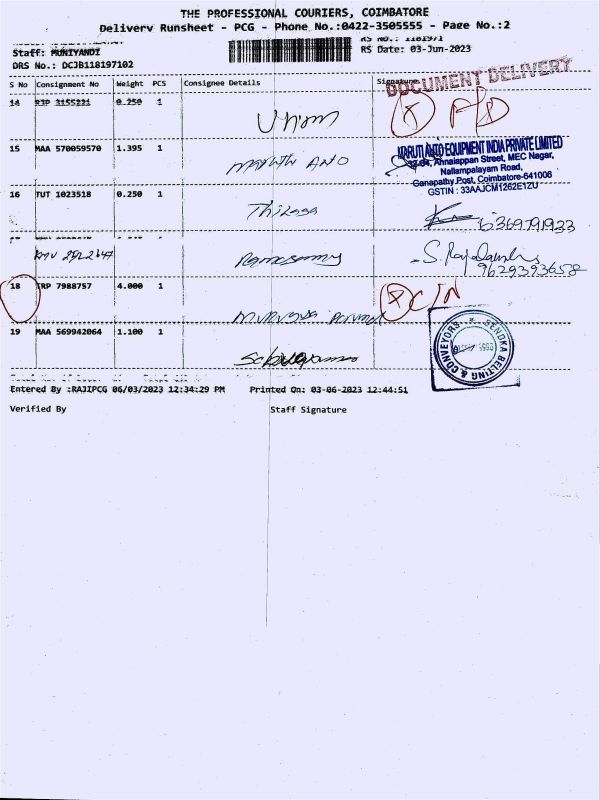 THE PROFESSIONAL COURIERS, COIMBATORE
Delivery Runsheet - PCG - Phone No.:0422-3505555 - Page No.:2
Staff: MUNIYANDI
RS No.: 1181971
DRS No.: DCJB118197102
RS Date: 03-Jun-2023
S No Consignment No Weight PCS Consignee Details Signature
DOCUMENT DELIVERY
14 RJP 3155221 0.250 1
15 MAA 570059570 1.395 1
MARUTI AUTO EQUIPMENT INDIA PRIVATE LIMITED
Annaiappan Street, MEC Nagar,
Nallampalayam Road,
Ganapathy Post, Coimbatore-641006
GSTIN : 33AAJCM1262E1ZU
16 TUT 1023518 0.250 1
Thilaga
6369791933
Ramasamy
9629393658
18 TRP 7988757 4.000 1
CIN
19 MAA 569942064 1.100 1
SENDKA BELTING & CONVEYORS
Entered By :RAJIPCG 06/03/2023 12:34:29 PM Printed On: 03-06-2023 12:44:51
Verified By Staff Signature